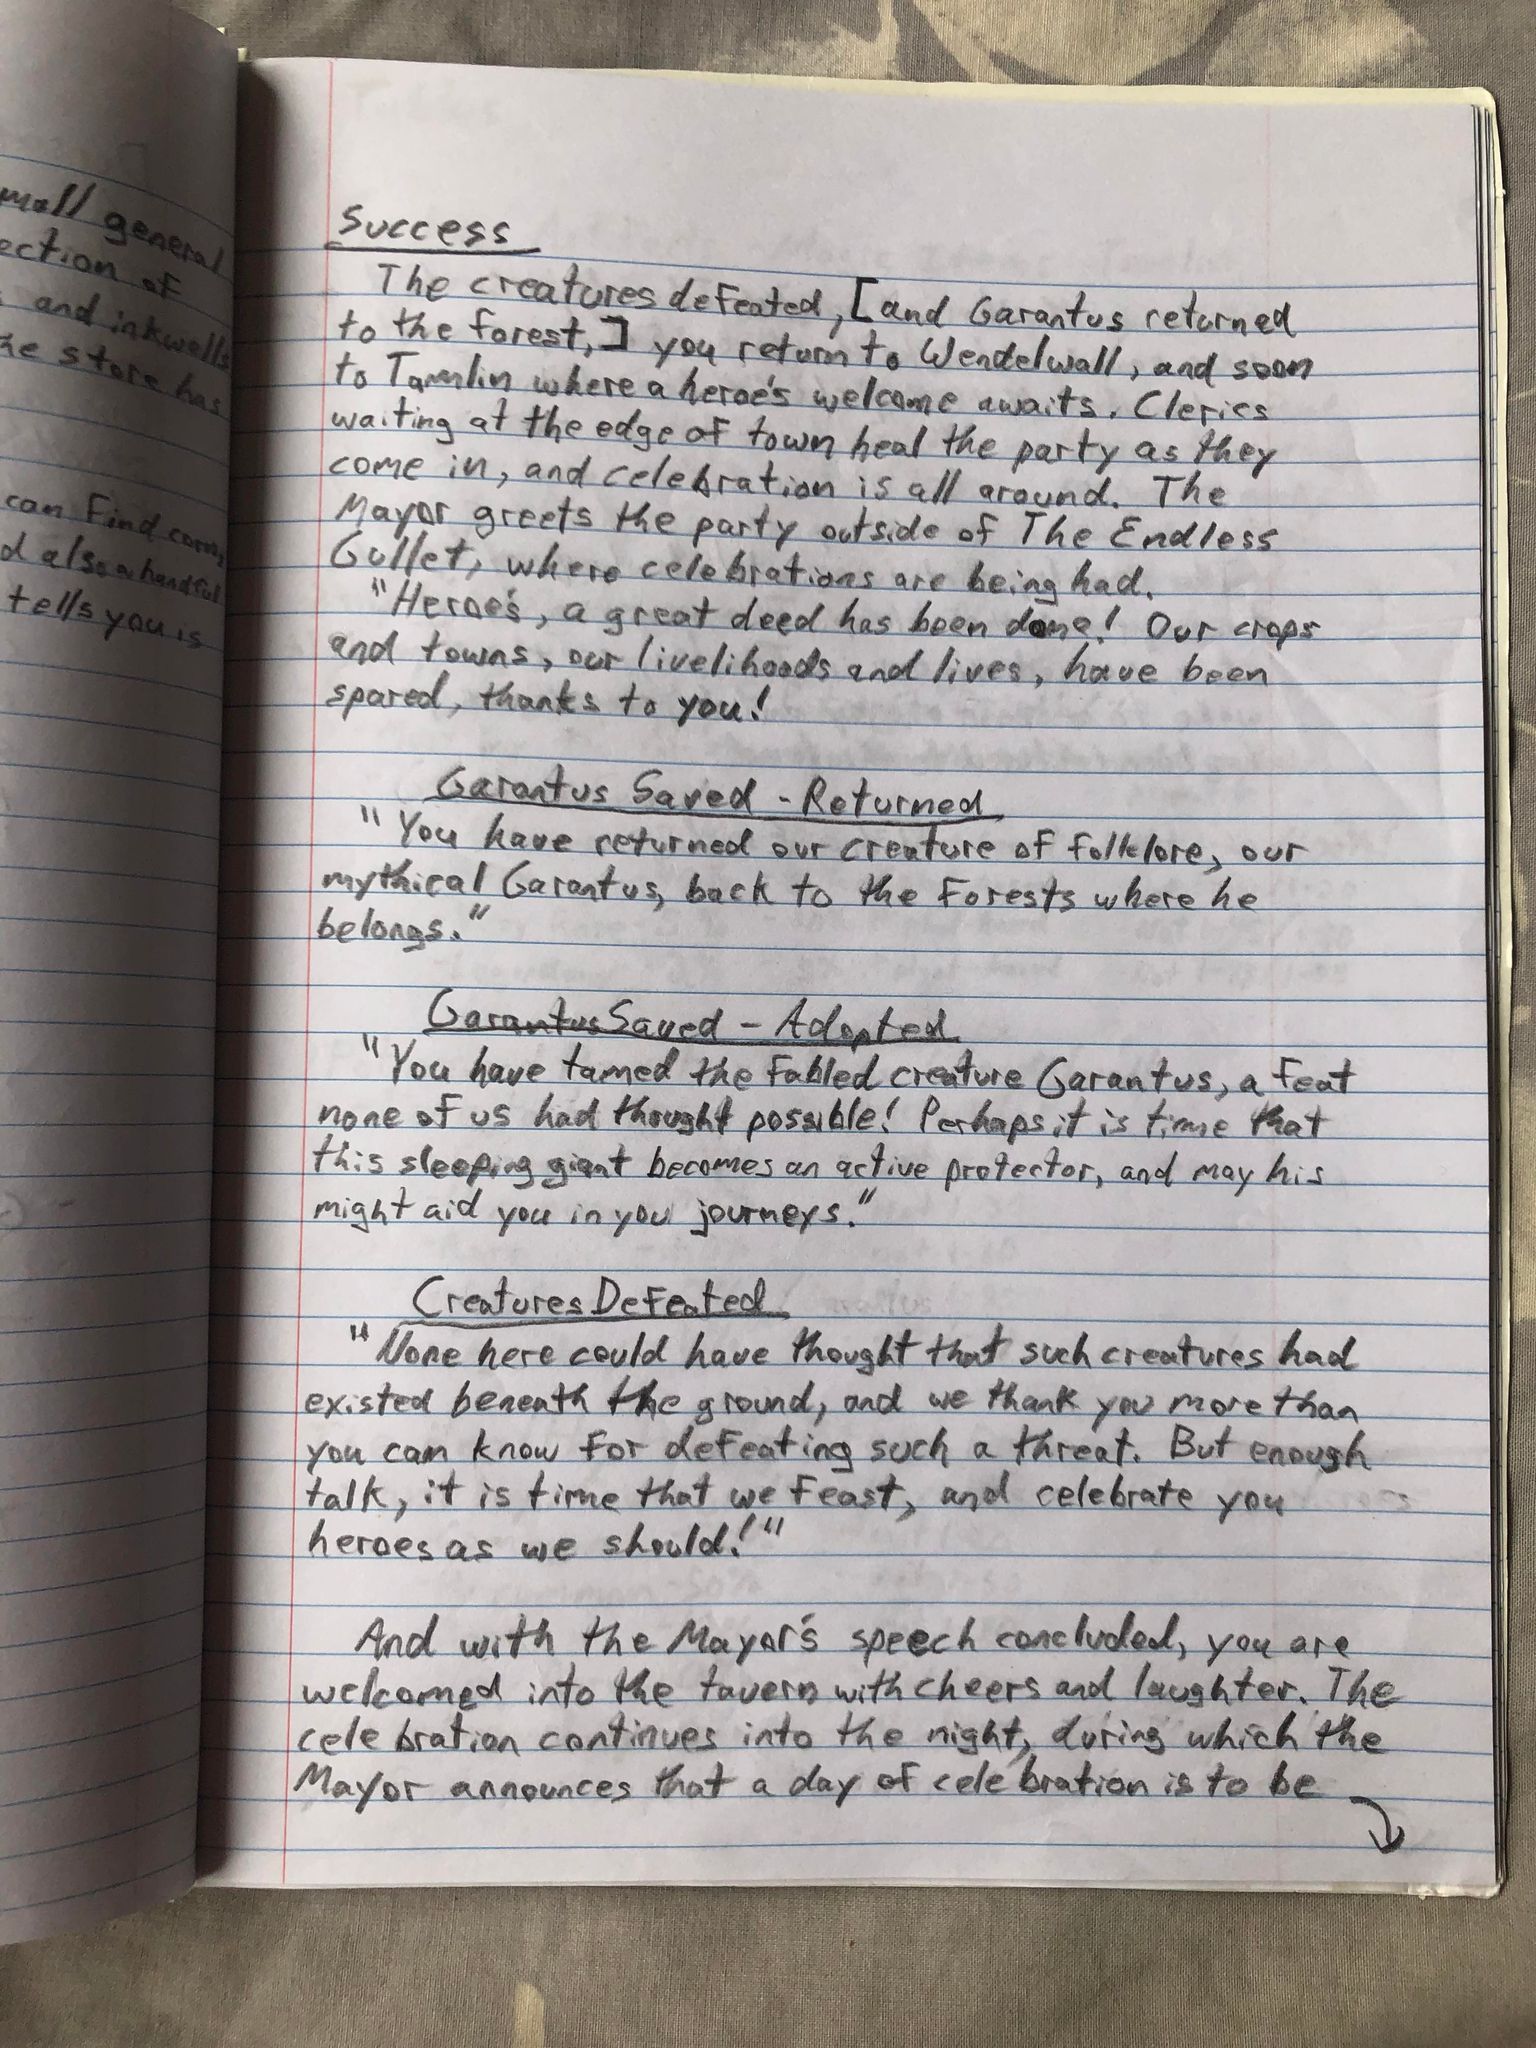 mall general
ection of
and inkwells
he store has
can find corn,
d also a handful
tells you is
Success
The creatures defeated, [and Garantus returned
to the forest,] you return to Wendelwall, and soon
to Tamlin where a heroe's welcome awaits. Clerics
waiting at the edge of town heal the party as they
come in, and celebration is all around. The
Mayor greets the party outside of The Endless
Gullet, where celebrations are being had.
"Heroe's, a great deed has been done! Our crops
and towns, our livelihoods and lives, have been
spared, thanks to you!
Garantus Saved - Returned
"You have returned our creature of folklore, our
mythical Garantus, back to the forests where he
belongs."
Garantus Saved - Adopted
"You have tamed the fabled creature Garantus, a feat
none of us had thought possible! Perhaps it is time that
this sleeping giant becomes an active protector, and may his
might aid you in you journeys."
Creatures Defeated
"None here could have thought that such creatures had
existed beneath the ground, and we thank you more than
you can know for defeating such a threat. But enough
talk, it is time that we feast, and celebrate you
heroes as we should!"
And with the Mayor's speech concluded, you are
welcomed into the tavern with cheers and laughter. The
celebration continues into the night, during which the
Mayor announces that a day of celebration is to be